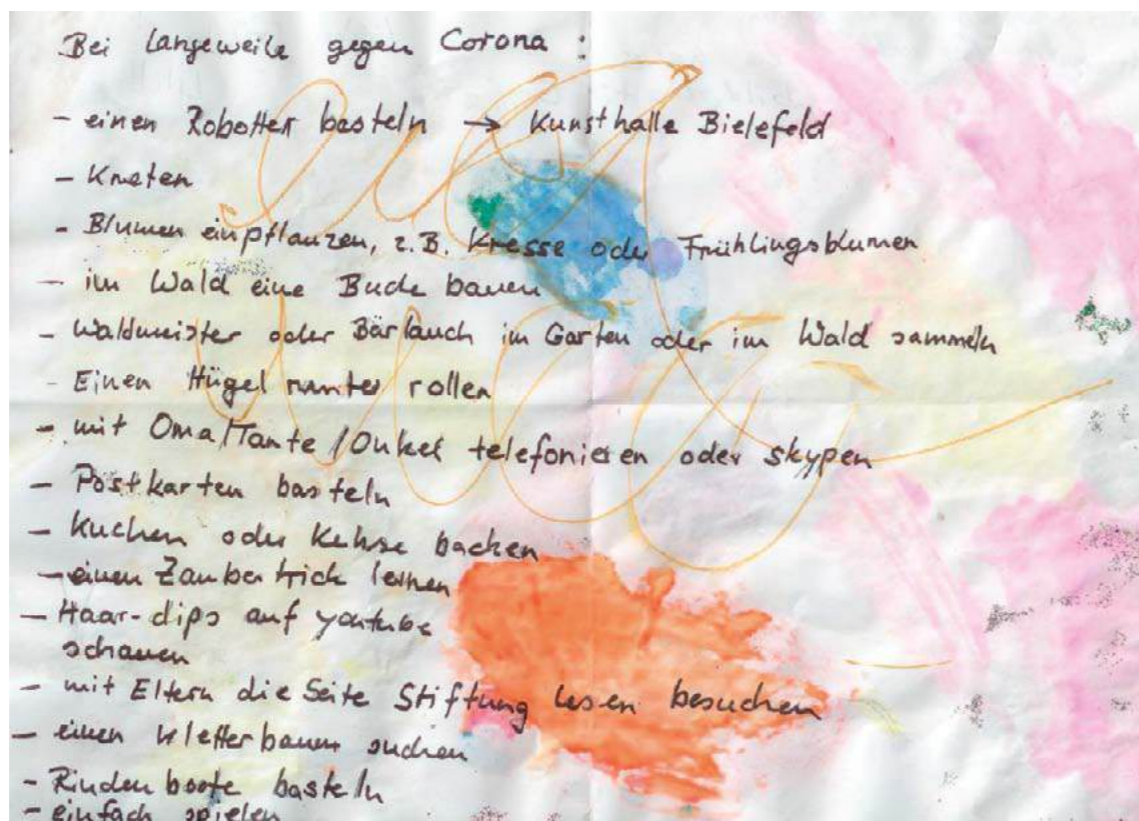 Bei Langeweile gegen Corona :
- einen Robotter basteln → Kunsthalle Bielefeld
- Kneten
- Blumen einpflanzen, z.B. Kresse oder Frühlingsblumen
- im Wald eine Bude bauen
- Waldmeister oder Bärlauch im Garten oder im Wald sammeln
- Einen Hügel runter rollen
- mit Oma/Tante/Onkel telefonieren oder skypen
- Postkarten basteln
- Kuchen oder Kekse backen
- einen Zaubertrick lernen
- Haar-clips auf youtube
schauen
- mit Eltern die Seite Stiftung lesen besuchen
- einen Kletterbaum suchen
- Rindenboote basteln
- einfach spielen